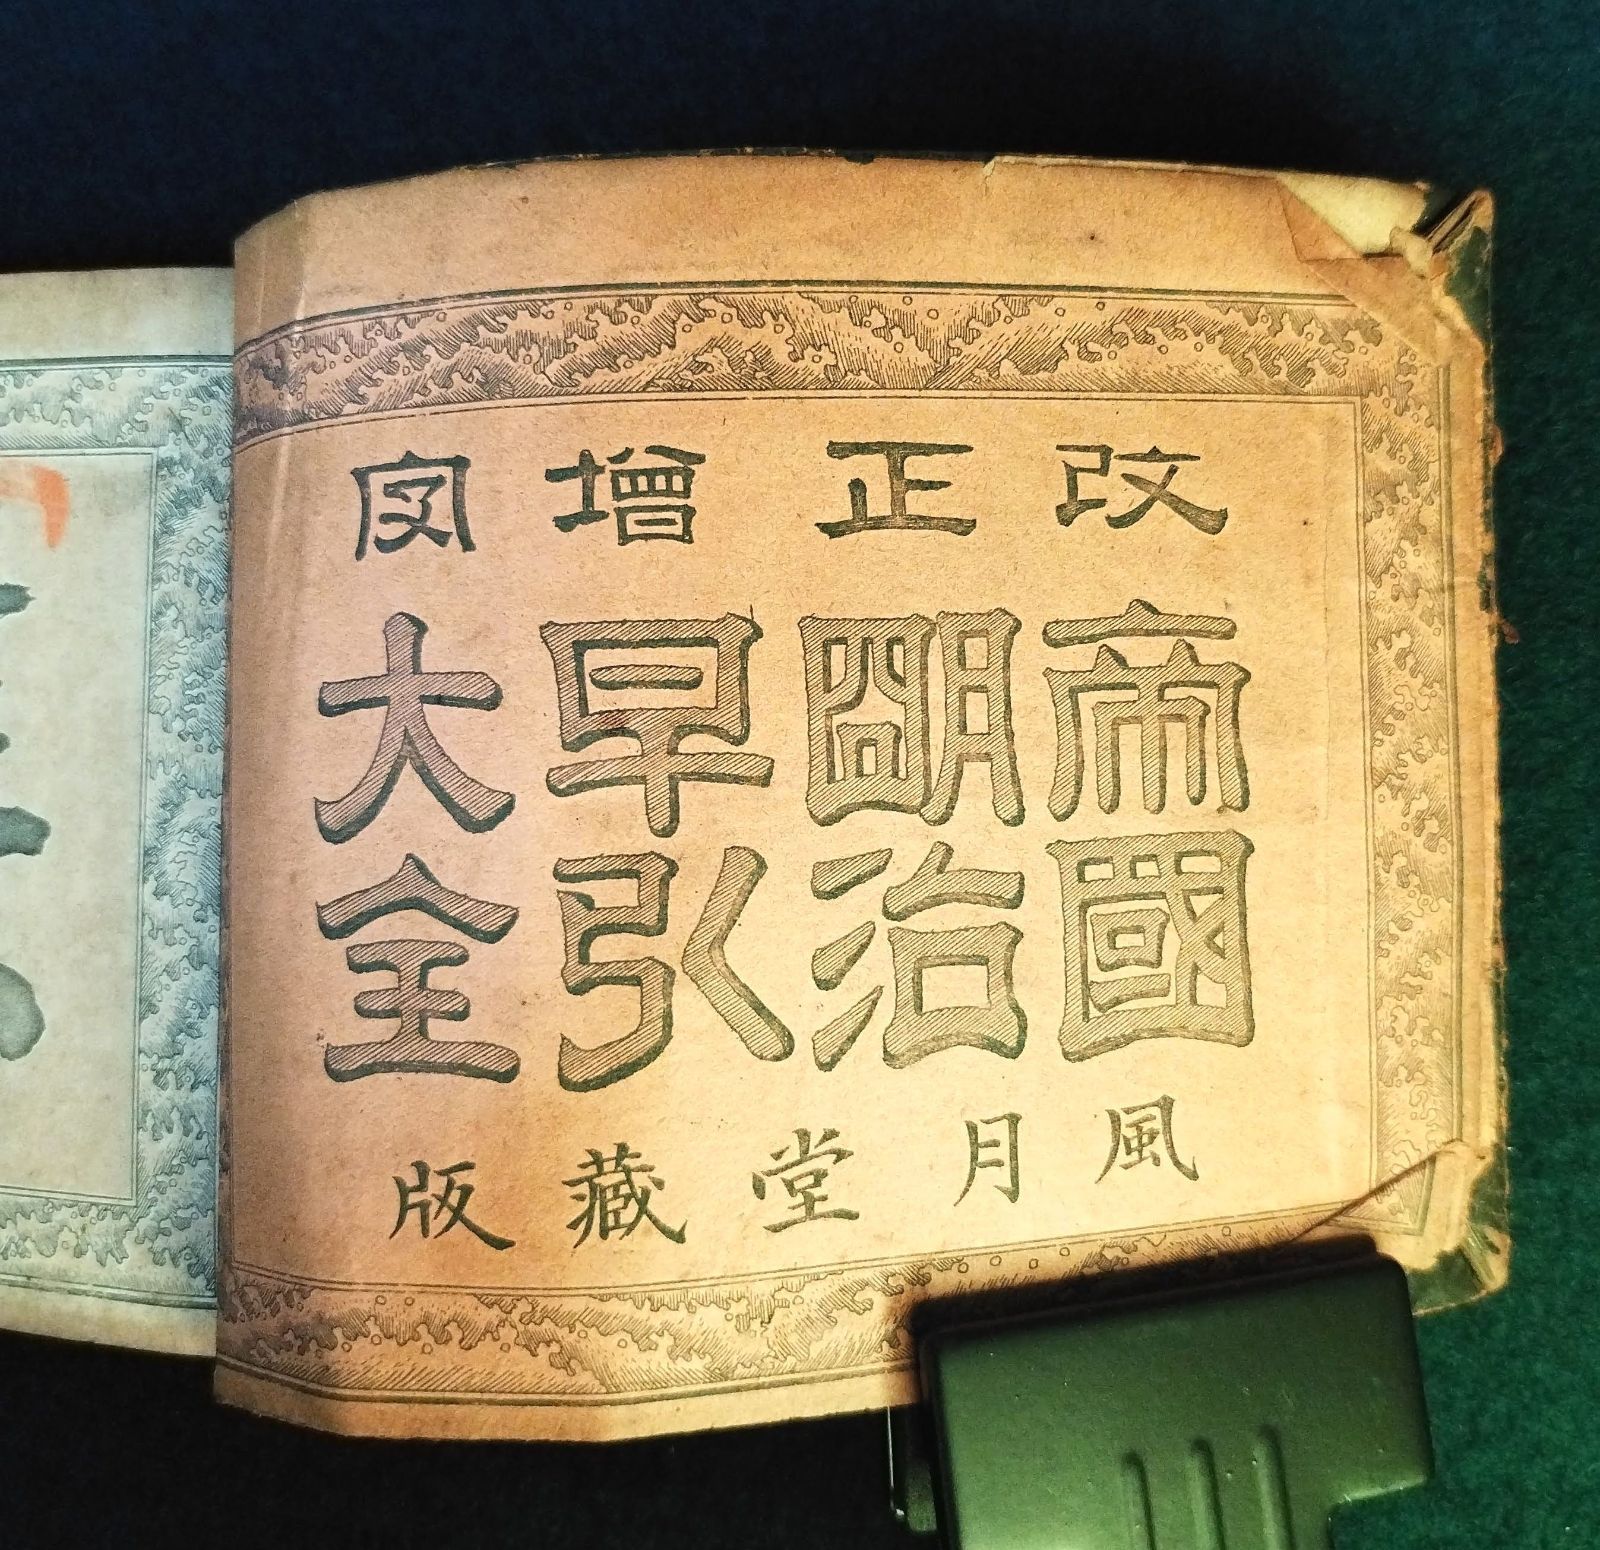 改正增字
帝國
朙治
早引
大全
風月堂藏版